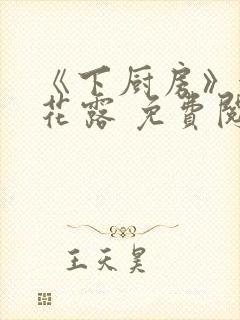 《下厨房》
花露 免費閱
王天昊